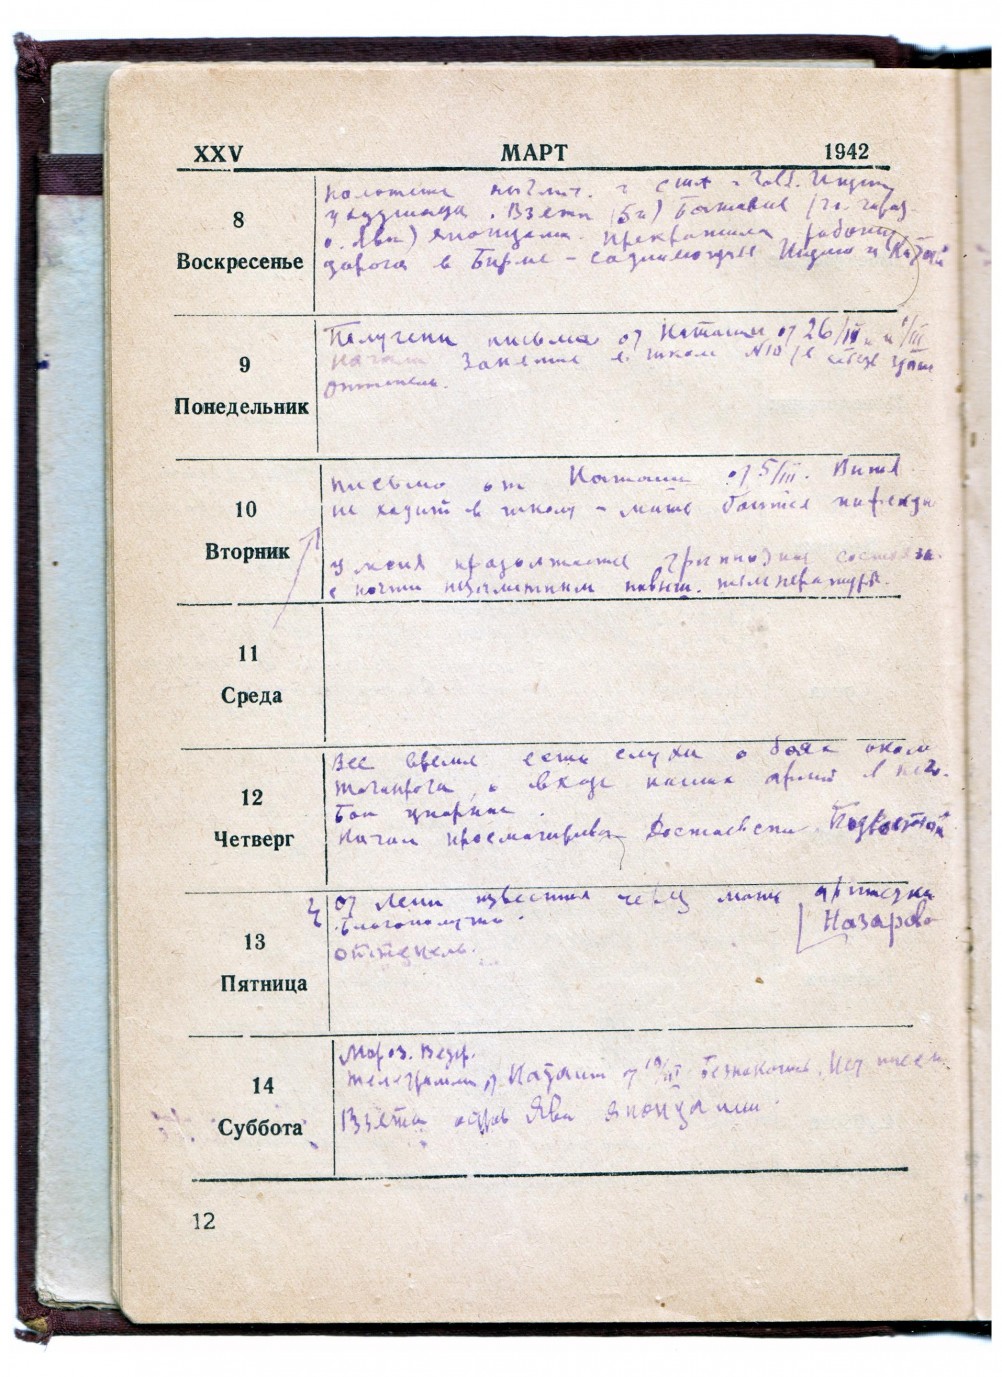 XXV МАРТ 1942
8
Воскресенье
положение англич. и сша в Голл. Индии
ухудшилос. Взята (5го) Батавия (гл. город
о. Ява) японцами. Прекратила работу
дорога в Бирме – соединяющая Индию и Китай
9
Понедельник
Получены письма от Наташи от 26/II и 1/III
Начал занятие в школе №10
оттепель.
10
Вторник
письмо от Наташи от 5/III. Витя
не ходит в школу – мать боится
у меня продолжается гриппозное состояние
с почти незаметным повыш. температуры.
11
Среда
12
Четверг
Все время есть слухи о боях около
Таганрога, о входе наших армий в него.
Бои упорные.
Начал просматривать Достоевского Подросток
13
Пятница
От Лени известия через мать
Благополучно.
Назарова
оттепель.
14
Суббота
Мороз. Ветр.
Телеграмма от Наташи от беспокоится. Нет писем
Взята остров Ява японцами.
12